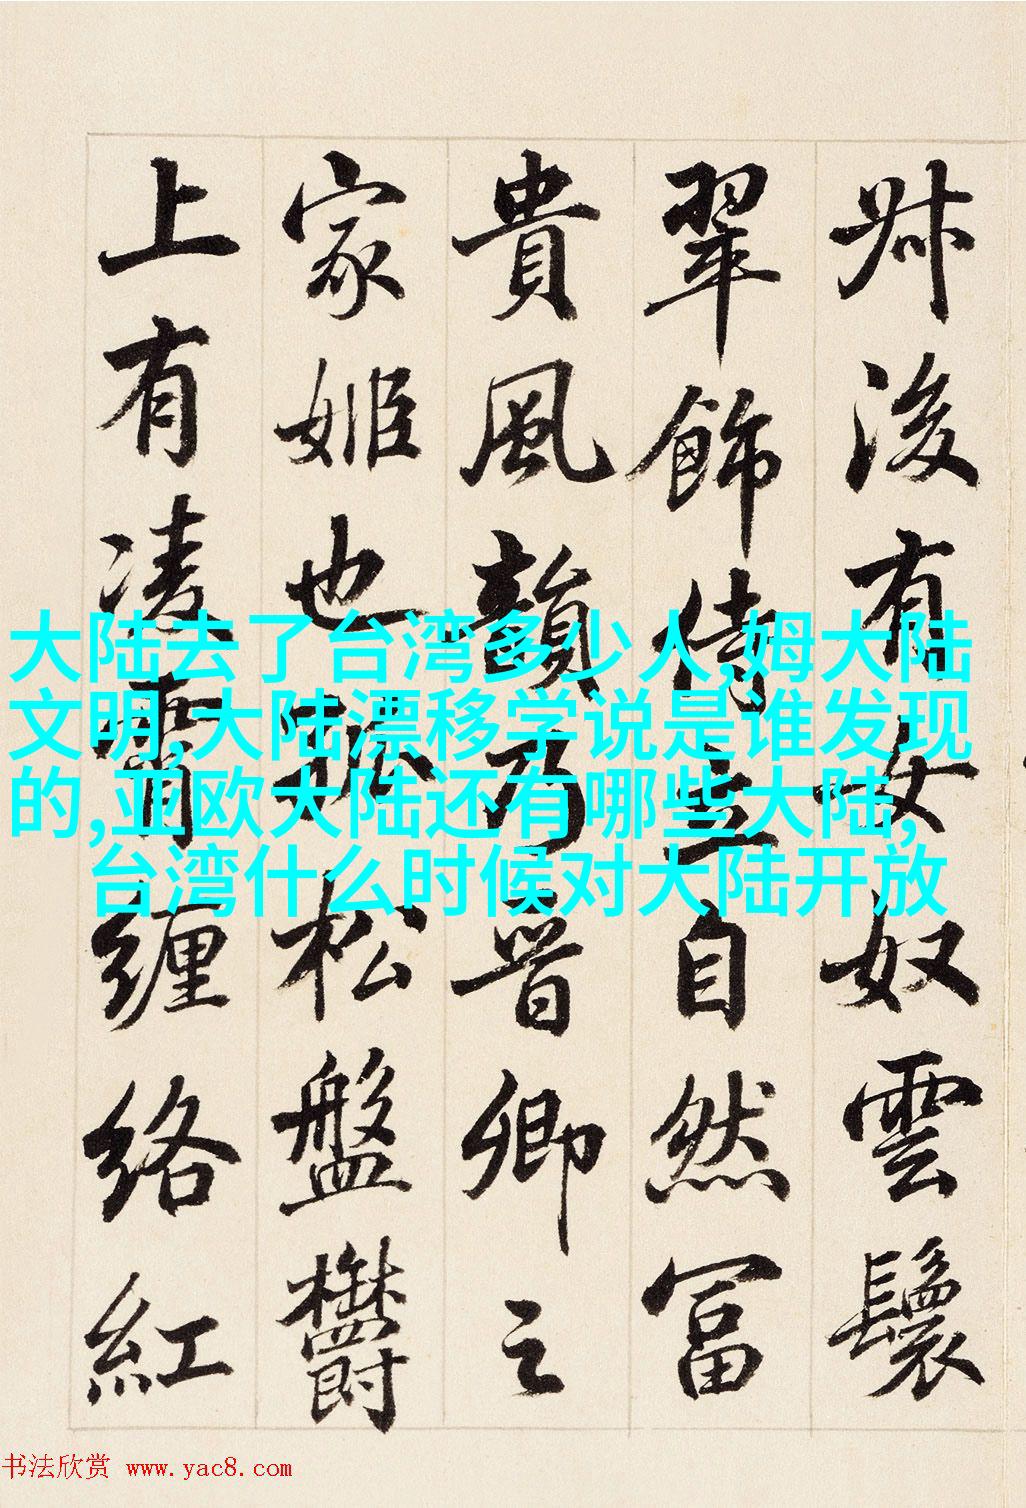 丱後有女奴雲鬟
翠飾侍立自然富
貴風韻乃晉卿之
家姬也孤松盤鬱
上有凌霄纏絡紅
大陆去了台湾多少人,姆大陆
文明,大陆漂移学说是谁发现
的,亚欧大陆还有哪些大陆,
台湾什么时候对大陆开放
书法欣赏 www.yac8.com